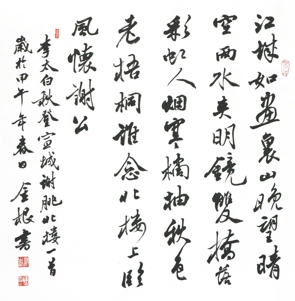 江城如畫裏山晚望晴
空兩水夾明鏡雙橋落
彩虹人烟寒橘柚秋色
老梧桐誰念北樓上臨
風懷謝公
李太白秋登宣城謝朓北樓一首
歲於甲午年春日金根書